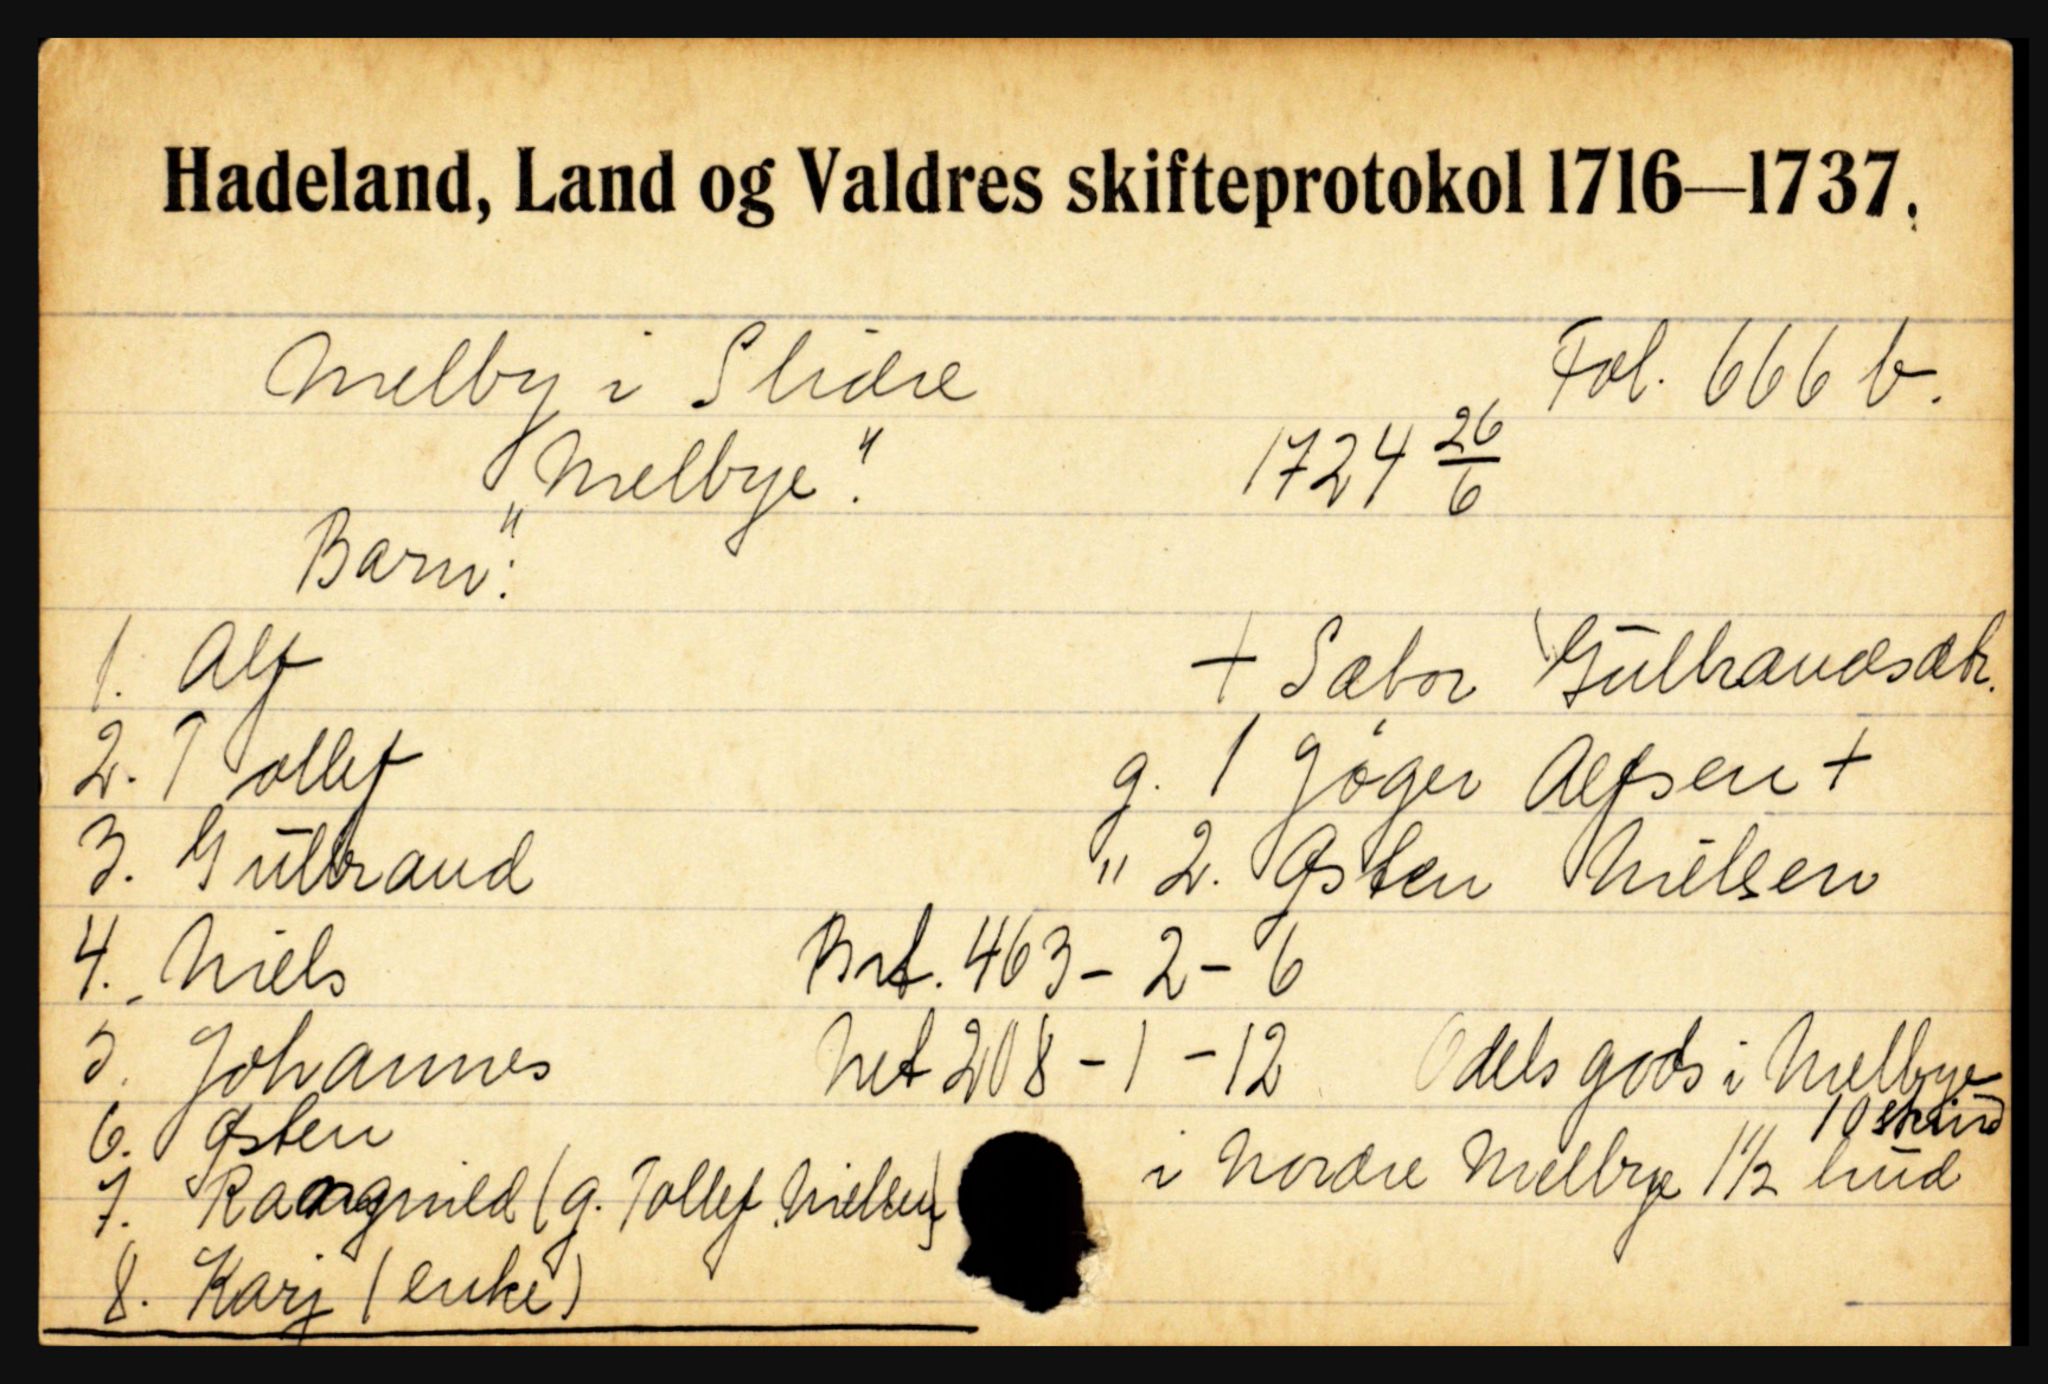 Hadeland, Land og Valdres skifteprotokol 1716—1737.
Melby i Slidre Fol. 666 b.
"Melbye". 1724 26/6
Barn":
1. Alf + Sæbor Gulbrandsdtr.
2. Tollef g. 1 Jøger Alfsen +
3. Gulbrand " 2. Østen Nielsen
4. Niels Brt. 463 - 2 - 6
5. Johannes Net 208 - 1 - 12 Odels gods i Melbye
10 skind
6. Østen
i Nordre Melbye 1 1/2 hud
7. Rangnild (g. Tollef Nielsen)
8. Karj (enke)